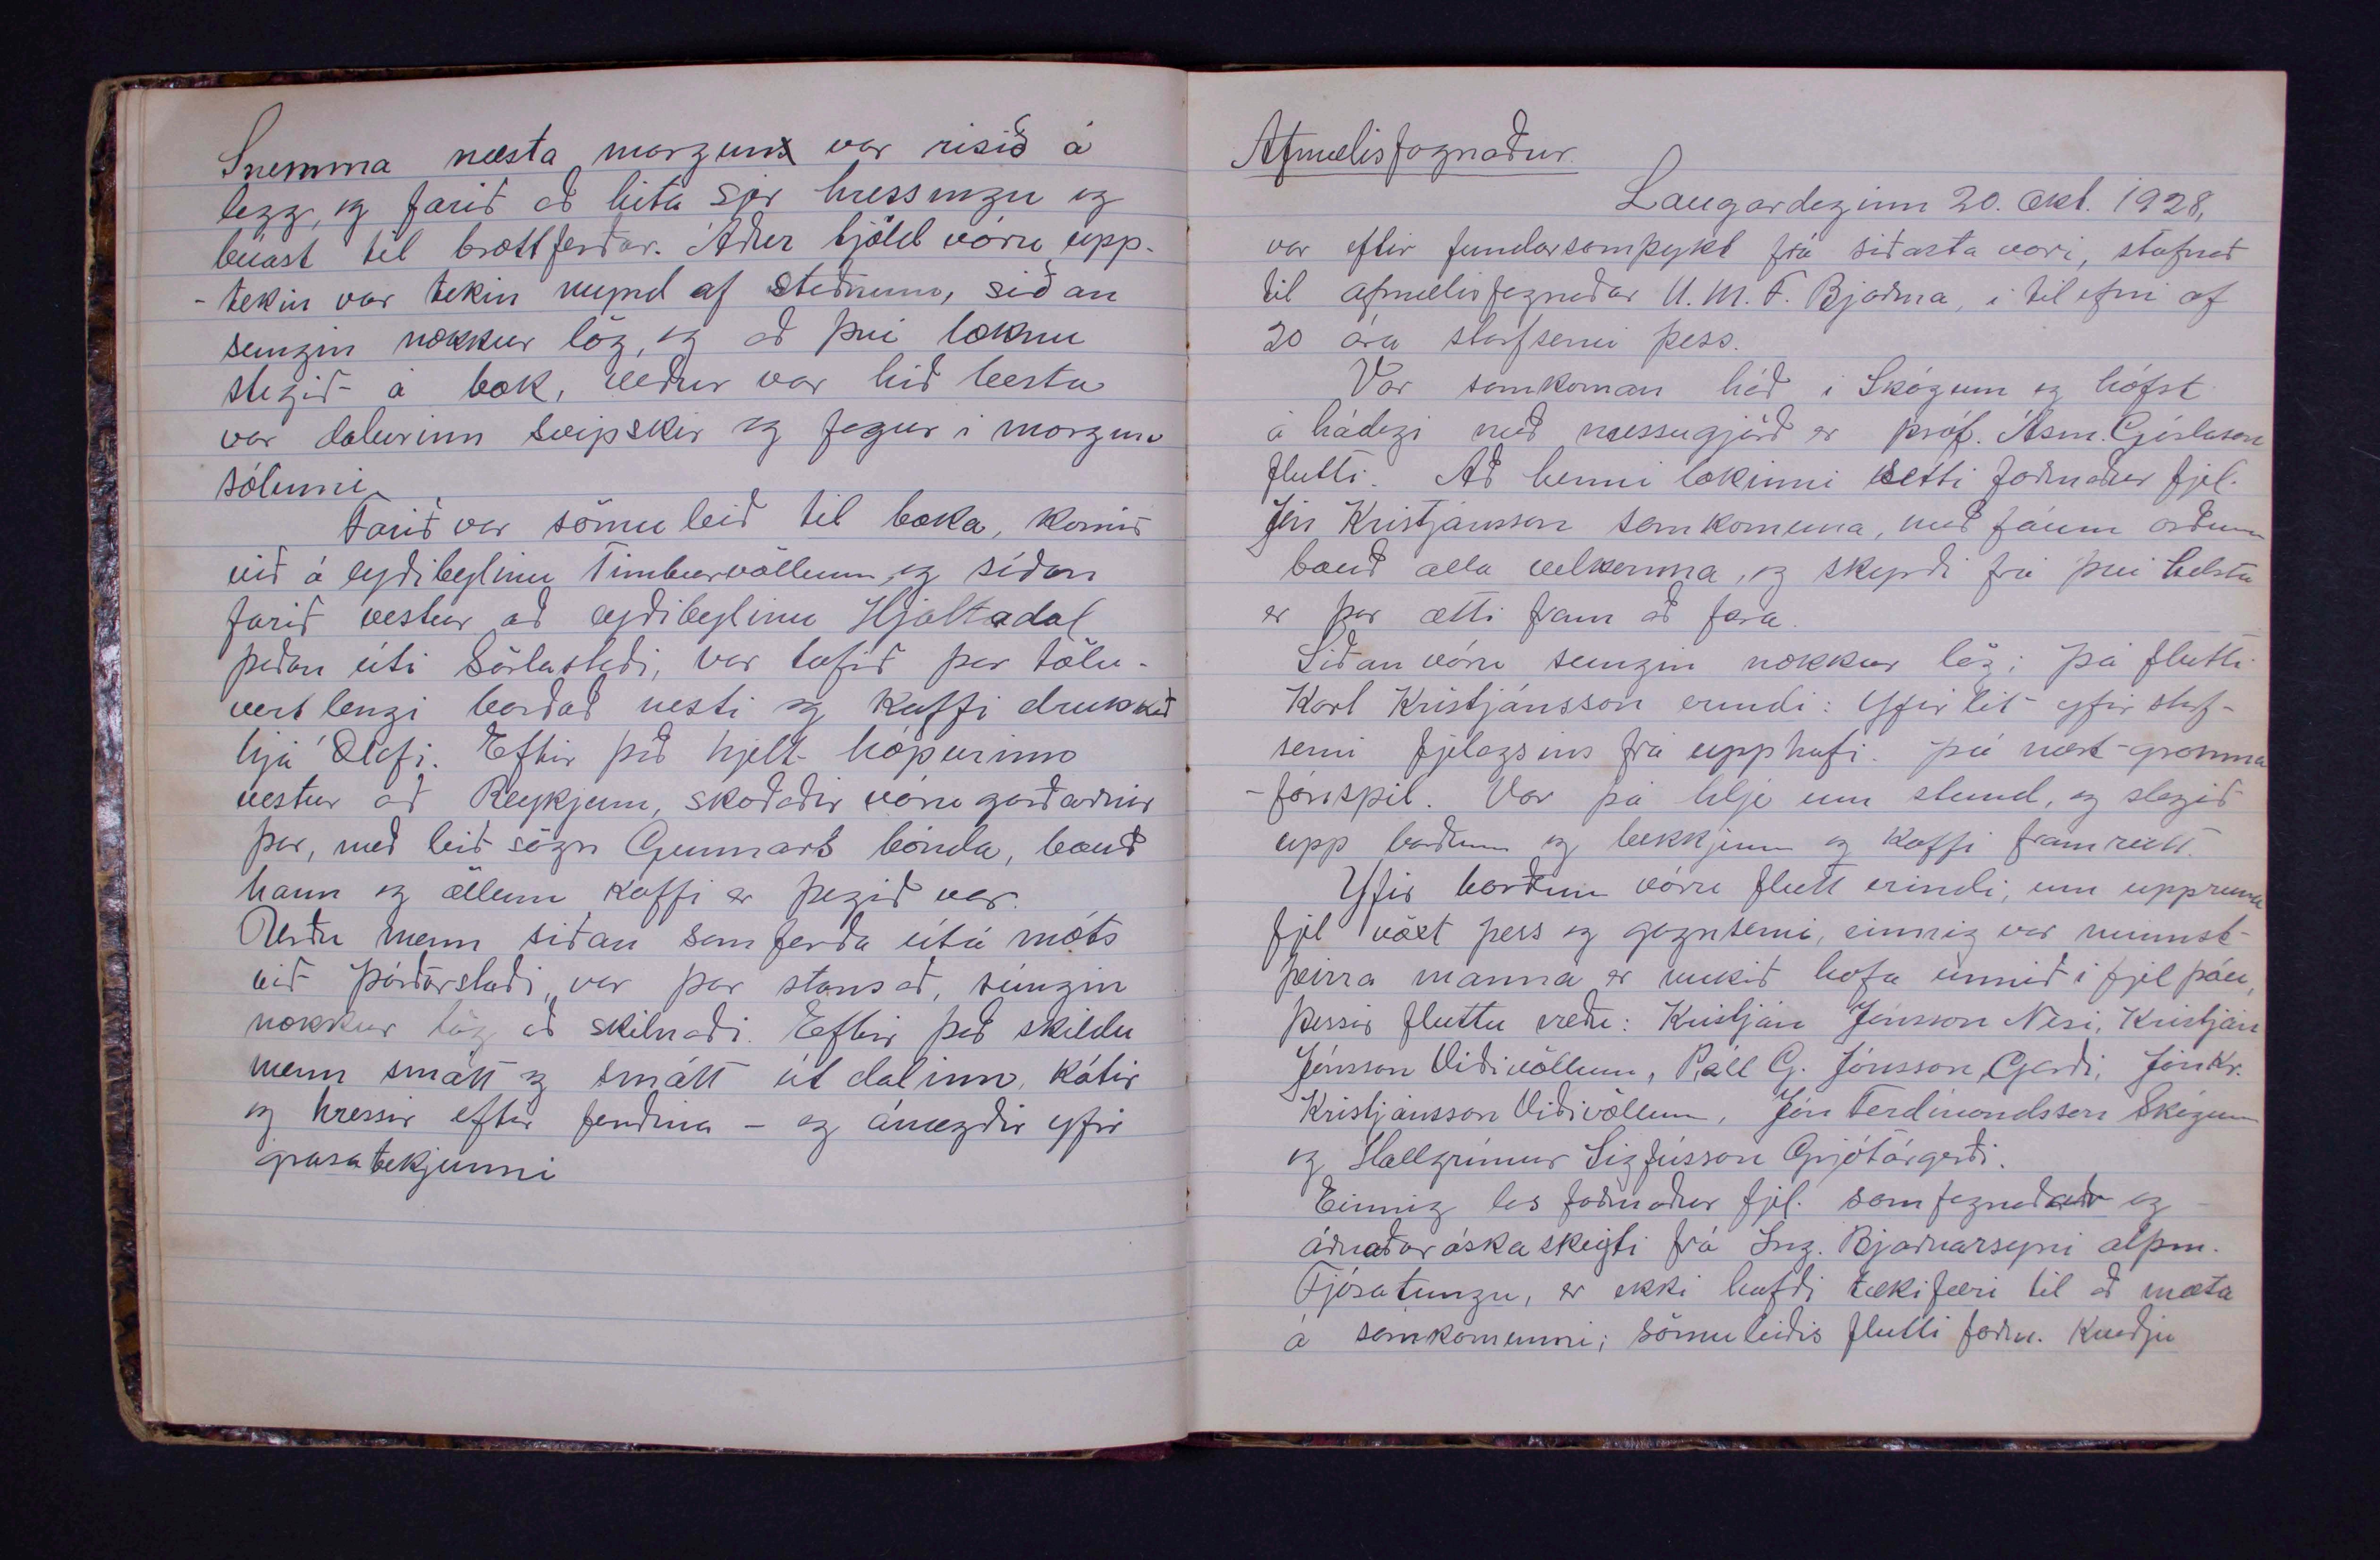 Snemma næsta morguns var risið á
legg, og farið að hita sjer hressingu og
búast til brottferðar. Áður tjöld vóru upp-
-tekin var tekin mynd af staðnum, síðan
sungin nokkur lög, og að því loknu
stigið á bak, veður var hið besta
var dalurinn svipskír og fagur i morgun
sólinni.
Farið var sömu leið til baka, komið
við á eyðibýlinu Timburvöllum og síðan
farið vestur að eyðibýlinu Hjaltadal
þaðan úti Sörlastaði, var tafið þar tölu-
vert lengi borðað nesti og kaffi drukkið
hjá Ólafi. Eftir það hjelt hópurinn
vestur að Reykjum, skoðaðir vóru garðarnir
þar, með leið sögn Gunnars bónda, bauð
hann og öllum kaffi er þegið var.
Urðu menn síðan samferða útá móts
við Þórðarstaði, var þar stansað, súngin
nokkur lög að skilnaði. Eftir það skildu
menn smátt og smátt út dalinn, kátir
og hressir eftir ferðina - og ánægðir yfir
grasatekjunni
Afmælisfagnaður.
Laugardeginn 20. okt. 1928,
var eftir fundarsamþykt frá síðasta vori, stofnað
til afmælisfagnaðar U.M.F. Bjarma, i tilefni af
20 ára starfsemi þess.
Var samkoman háð i Skógum og hófst
á hádegi með messugjörð er próf. Ásm. Gíslason
flutti. Að henni lokinni setti formaður fjel.
Jón Kristjánsson samkomuna, með fáum orðum
bauð alla velkomna, og skyrði frá því helsta
er þar ætti fram að fara.
Síðan vóru sungin nokkur lög; þá flutti
Karl Kristjánsson erindi: Yfirlit yfir starf-
semi fjelagsins frá upphafi. Þá næst grammo
-fónspil. Var þá hlje um stund, og slegið
upp borðum og bekkjum og kaffi framreitt.
Yfir borðum vóru flutt erindi, um uppruna
fjel vöxt þess og gagnsemi, einnig var minnst
þeirra manna er mikið hafa unnið i fjel þáu,
þessir fluttu ræðu: Kristján Jónsson Nesi, Kristján
Jónsson Víðivöllum, Páll G. Jónsson Garði, Jón Kr.
Kristjánsson Víðivöllum, Jón Ferdínandsson Skógum
og Hallgrímur Sigfússon Grjótárgerði.
Einnig las formaður fjel. samfagnaðar og
árnaðaróskaskeyti frá Ing. Bjarnarsyni alþm.
Fjósatungu, er ekki hafði tækifæri til að mæta
á samkomunni; sömuleiðis flutti form. kveðju